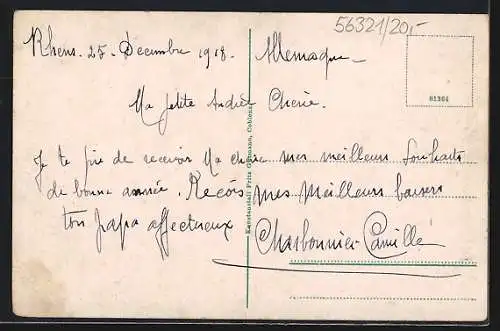 56321/20,-
Rhens. 25. Decembre 1918. Allemagne
81364
Ma petite Andrée Cherie.
Je te prie de recevoir Ma chère mes meilleurs Souhaits
de bonne année. Reçois mes Meilleurs baisers
ton papa affectueux
Charbonnier Camille
Kunstanstalt Fritz Gutmann, Coblenz